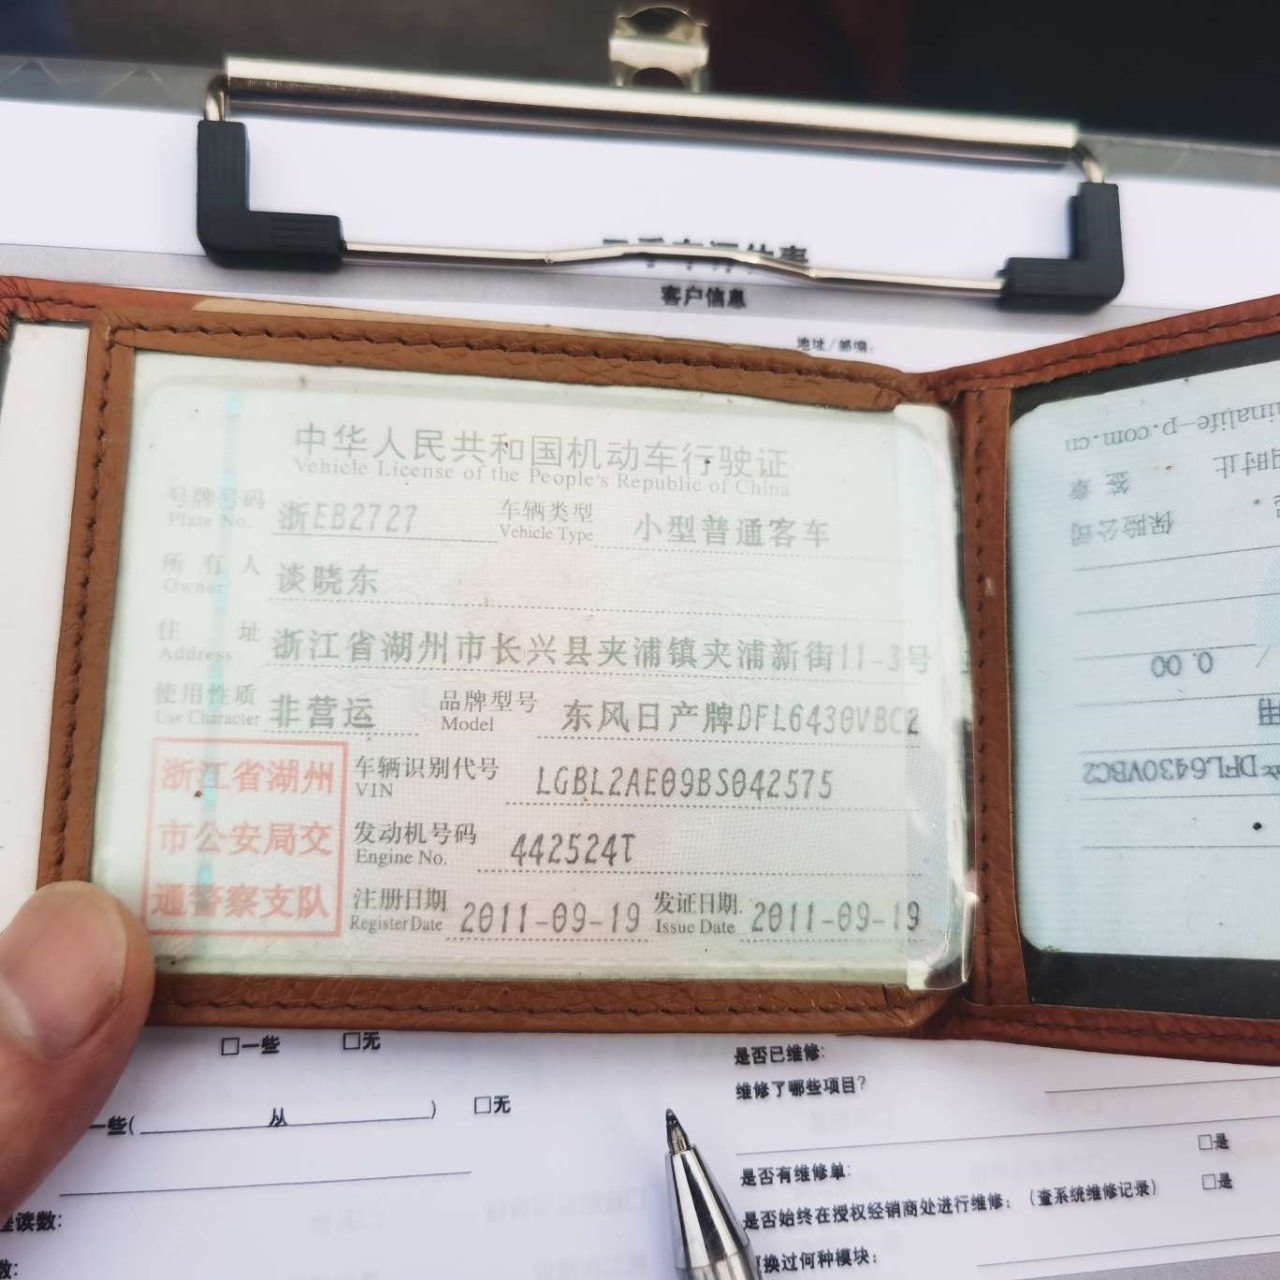 客户信息
地址/邮编:
中华人民共和国机动车行驶证
Vehicle License of the People's Republic of China
号牌号码 浙EB2727 车辆类型 小型普通客车
Plate No. Vehicle Type
所有人 谈晓东
Owner
住址 浙江省湖州市长兴县夹浦镇夹浦新街11-3号
Address
使用性质 非营运 品牌型号 东风日产牌DFL6430VBC2
Use Character Model
浙江省湖州
市公安局交
通警察支队
车辆识别代号 LGBL2AE09BS042575
VIN
发动机号码 442524T
Engine No.
注册日期 2011-09-19 发证日期 2011-09-19
Register Date Issue Date
inalife-p.com.cn
签章
保险公司
0.00
DFL6430VBC2
□一些 □无
一些( 从 ) □无
读数:
数:
是否已维修:
维修了哪些项目?
□是
是否有维修单:
□是
是否始终在授权经销商处进行维修:(查系统维修记录)
换过何种模块: